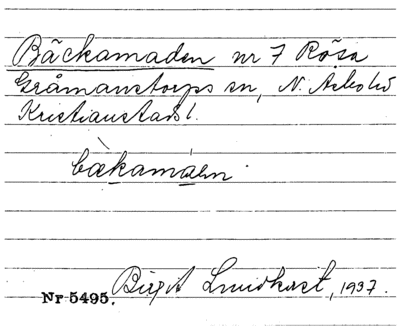 Bäckamaden nr 7 Rösa
Gråmanstorps sn, N. Åsbo hd
Kristianstads l.
bækamàen
Birgit Lundkvist, 1937.
Nr 5495.